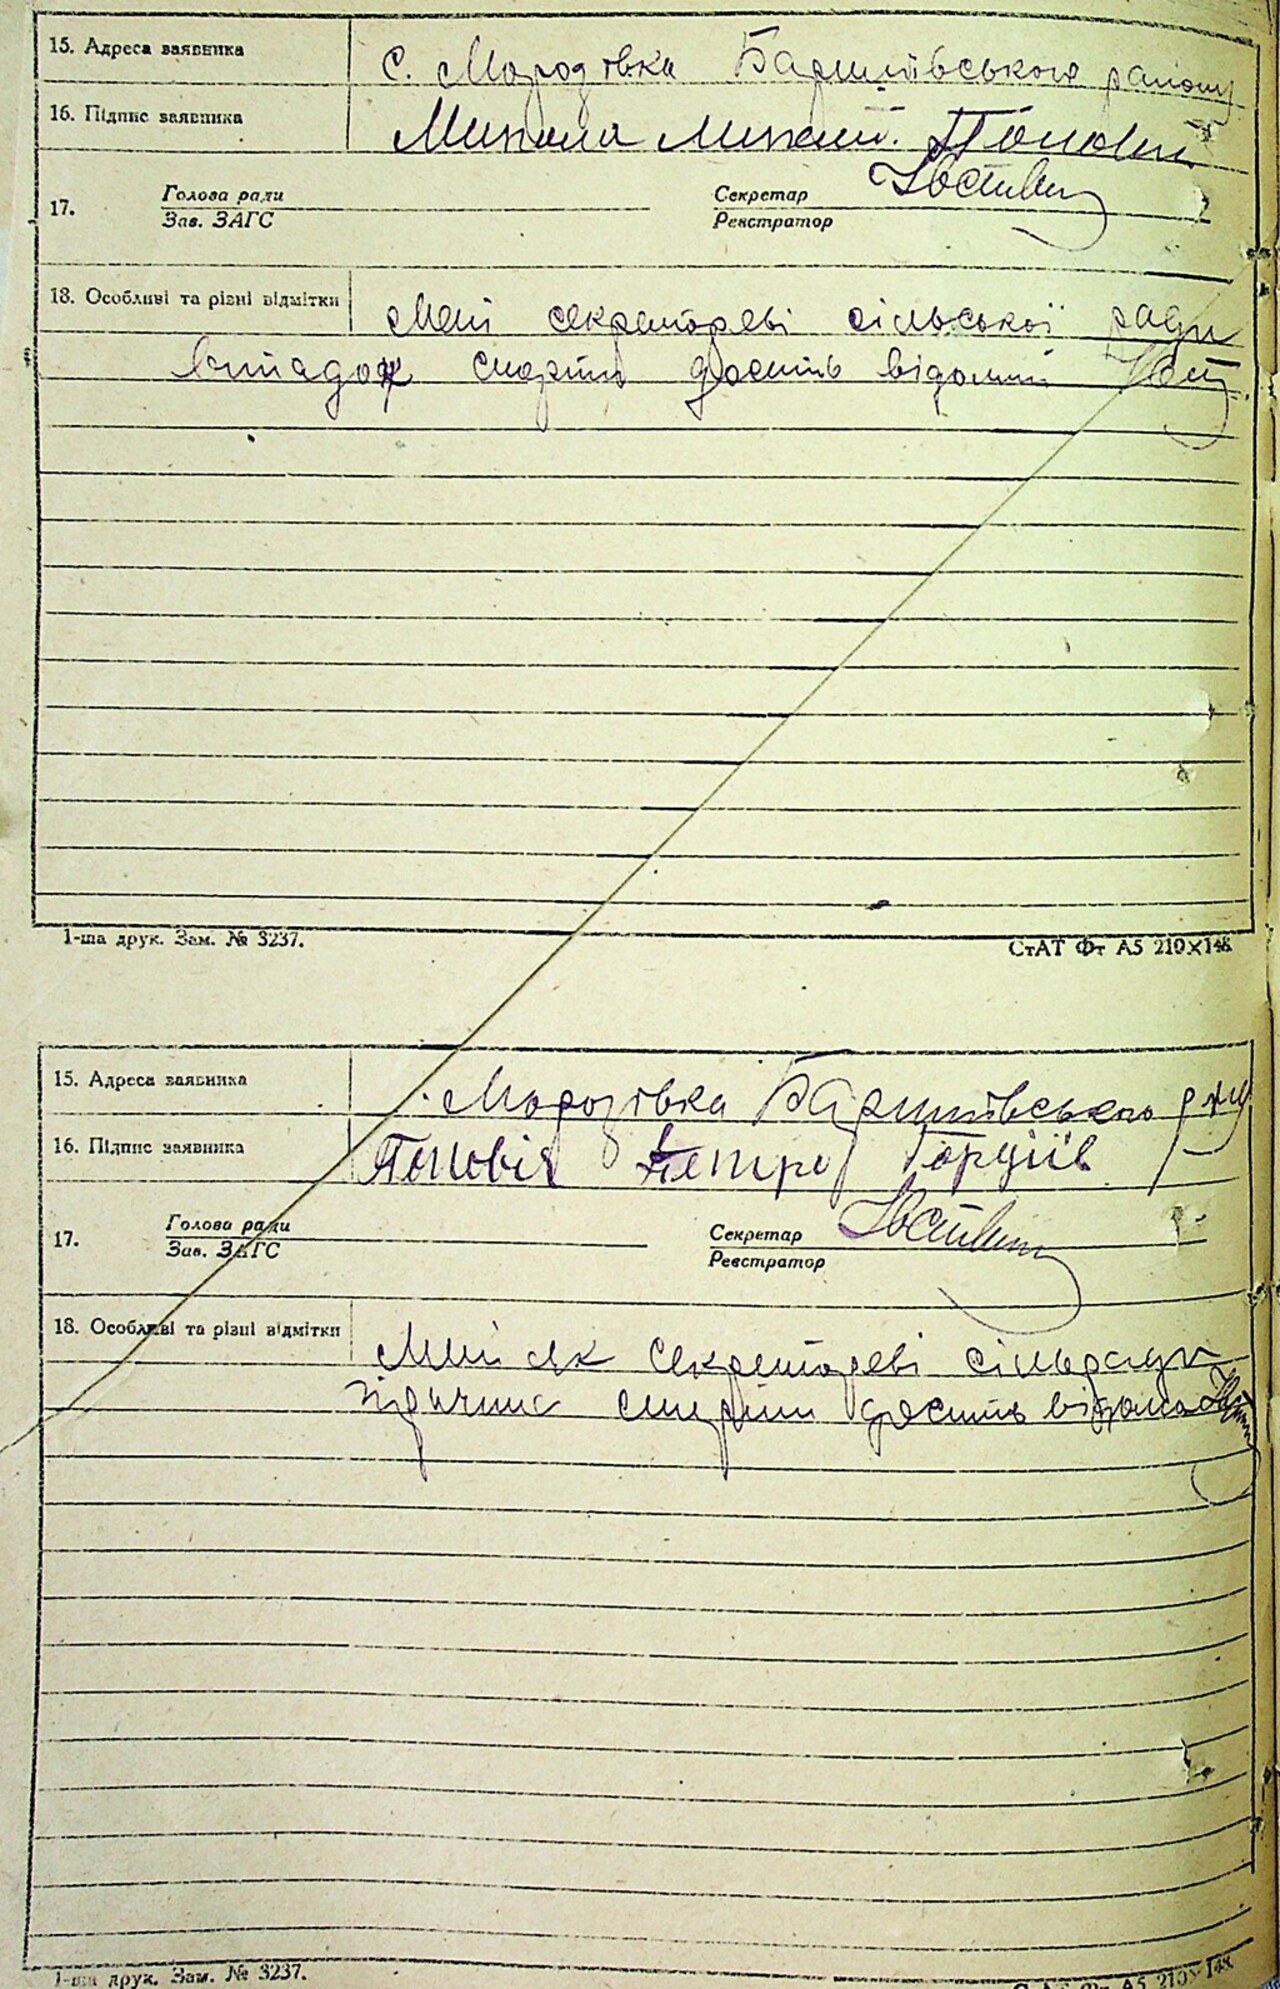 15. Адреса заявника с. Морозівка Баришівського району
16. Підпис заявника Микола Попович
17. Голова ради Секретар
Зав. ЗАГС Реєстратор
18. Особливі та різні відмітки Мені секретареві сільської ради
випадок смерти досить відомий
1-ша друк. Зам. № 3237. СтАТ Фт А5 210×148
15. Адреса заявника Морозівка Баришівського р-ну
16. Підпис заявника Петро Гордіїв
17. Голова ради Секретар
Зав. ЗАГС Реєстратор
18. Особливі та різні відмітки Мені як секретареві сільради
причина смерти досить відома
1-ша друк. Зам. № 3237. СтАТ Фт А5 210×148